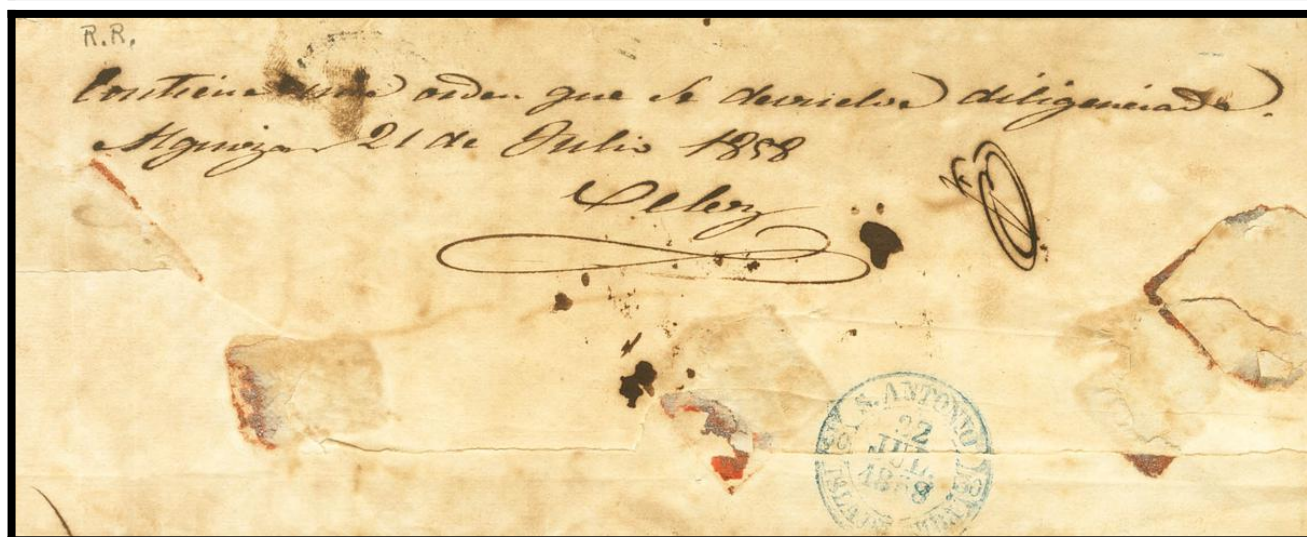 R.R.
Contiene una orden que se devuelve diligenciada.
Alquizar 21 de Julio 1858
Velez
S. ANTONIO
22
JUL.
1858